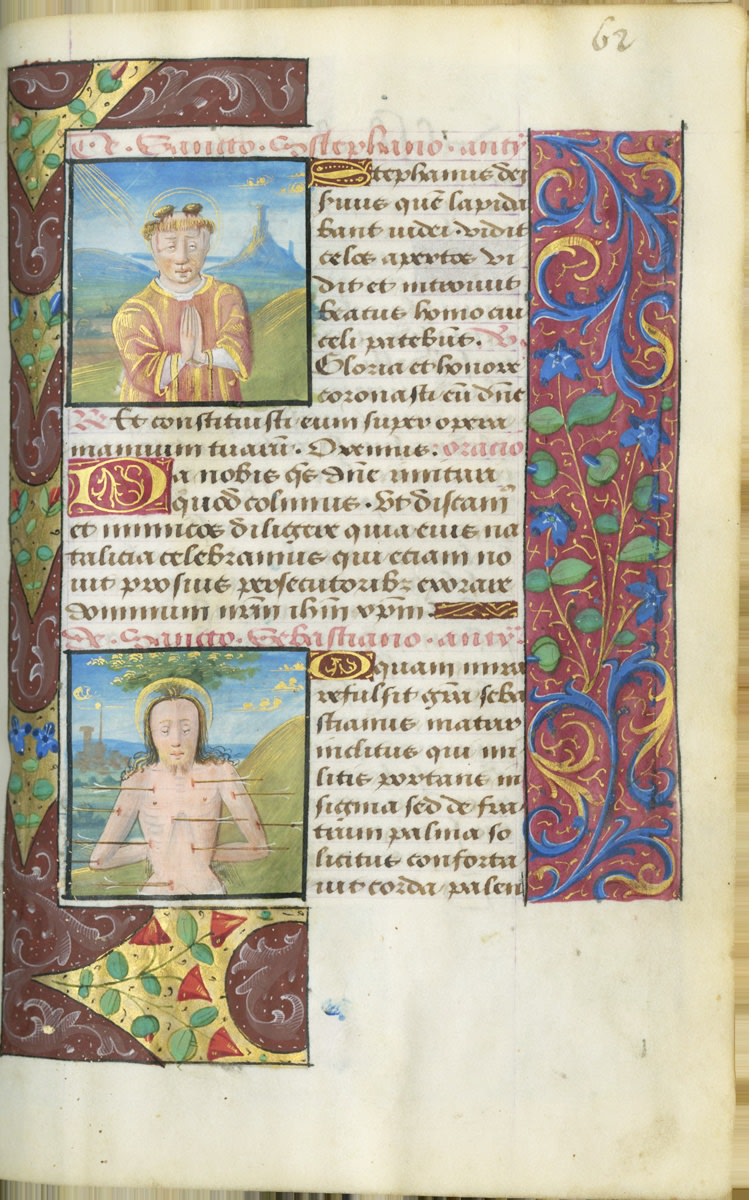 62
De Sancto Stephano anty
Stephanus dei
seruus quē lapida
bant iudei vidit
celos apertos vi
dit et introiuit
beatus homo cui
celi patebūt. V
Gloria et honore
coronasti eū dñe
R Et constituisti eum super opera
manuum tuarū. Oremus. oracio
Da nobis qs dñe imitari
quod colimus. Vt discam
et inimicos diligere quia eius na
talicia celebramus qui etiam no
uit pro suis persecutoribz exorare
dominum nr̄m ihm xpm.
De Sancto Sebastiano anty
O quam mira
refulsit grā seba
stianus martir
inclitus qui mi
litis portans in
signia sed de fra
trum palma so
licitus conforta
uit corda palen